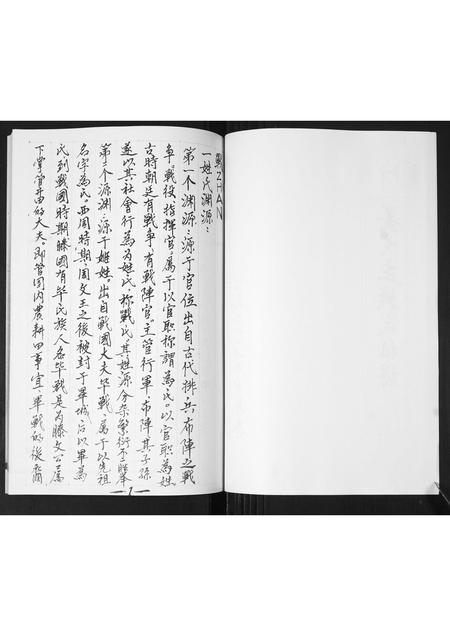 戰 ZHAN
一姓氏渊源：
第一个渊源：源于官位出自古代排兵布陣之戰
争戰役指揮官，屬于以官职称謂為氏。以官职為姓
古時朝廷有戰事，有戰陣官。主管行軍布陣其子孫
遂以其社會行為為姓氏，称戰氏。其姓源分杂繁衍不
第二个源渊：源于姬姓。出自戰國大夫毕戰，屬于以先祖
名字為氏。西周時期，周文王之後被封于畢城后以畢為
氏到戰國時期滕國有毕氏族人名毕戰是为滕文公属
下掌管井田的大夫。即管国内農耕田事宜。畢戰的後裔
—1—